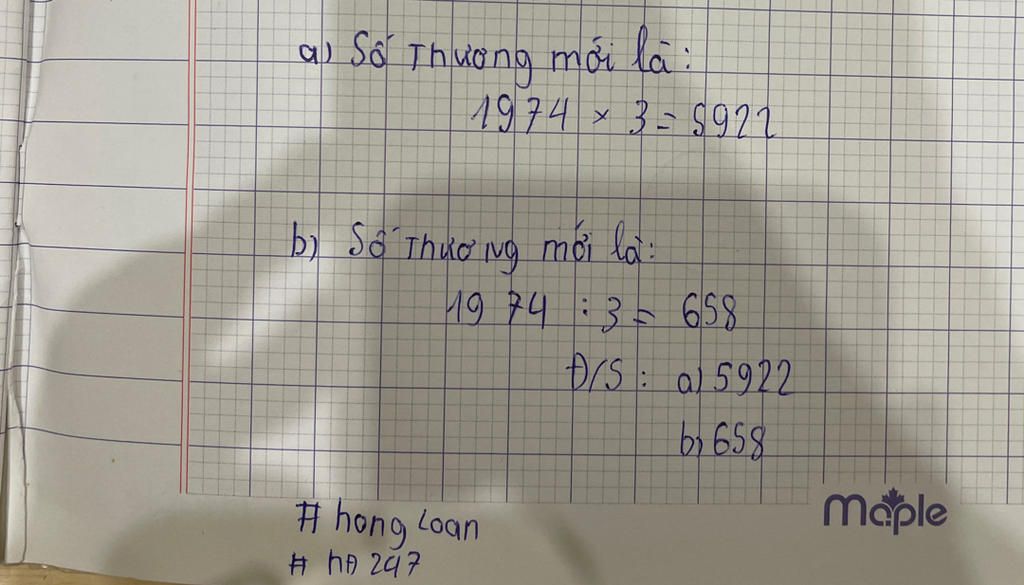 a) Số Thương mới là:
1974 × 3 = 5922
b) Số Thương mới là:
1974 : 3 = 658
Đ/S : a) 5922
b) 658
# hong Loan
# hĐ 247
maple